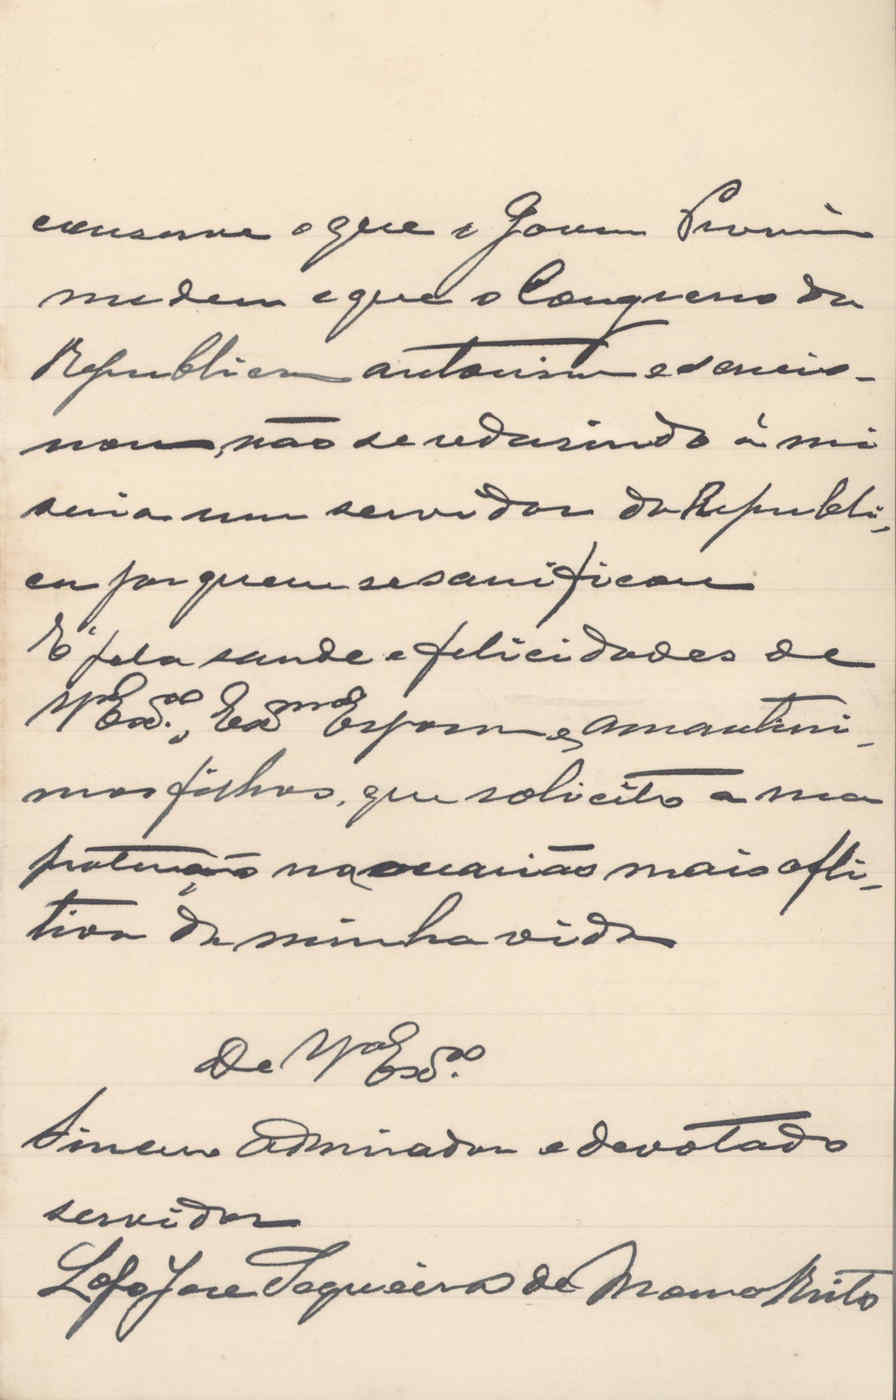 conserve o que o Govern Provin
me deu e que o Congresso da
Republica autorisou e sancio-
nou, não se redusindo á mi
seria um servidor da Republi-
ca por quem se sacrificou
E' pela saude e felicidades de
Vª Exª., Exmª Esposa e amantissi-
mos filhos, que solicito a sua
protecção na occasião mais afli-
tiva da minha vida
De Vª Exª.
Sincero admirador e devotado
servidor
José Sequeira de Brito